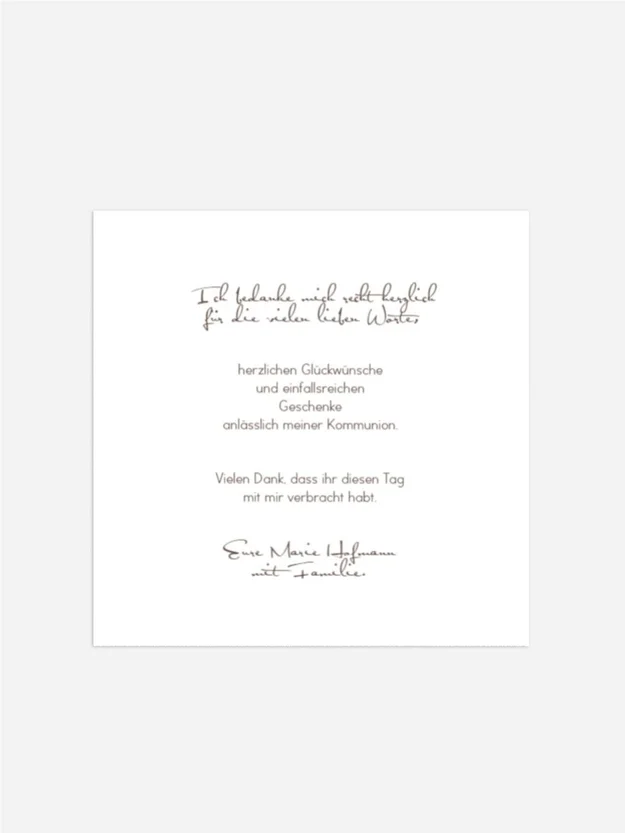 Ich bedanke mich recht herzlich
für die vielen lieben Worte,
herzlichen Glückwünsche
und einfallsreichen
Geschenke
anlässlich meiner Kommunion.
Vielen Dank, dass ihr diesen Tag
mit mir verbracht habt.
Eure Marie Hofmann
mit Familie.